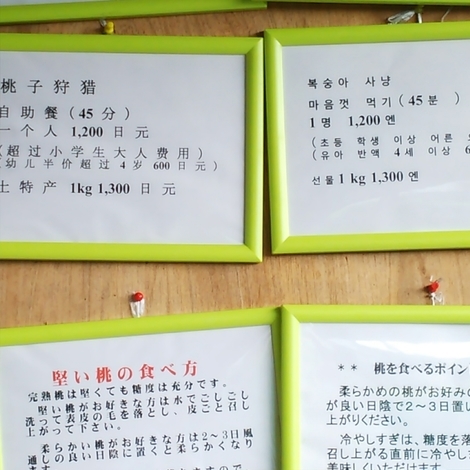 桃子狩猎
自助餐(45分)
一个人 1,200日元
(超过小学生大人费用)
(幼儿半价超过4岁 600日元)
土特产 1kg 1,300日元
복숭아 사냥
마음껏 먹기(45분)
1명 1,200엔
(초등 학생 이상 어른
(유아 반액 4세 이상 6
선물 1kg 1,300엔
堅い桃の食べ方
完熟桃は堅くても糖度は充分です。
堅い桃がお好きな方は水でごしごし
洗って表皮の毛を落とし、皮ごと召し
上がって下さい。
柔らかい桃がお好きな方は2~3日風
通しの良い日陰に置くと柔らかくなり
ます。
** 桃を食べるポイン
柔らかめの桃がお好みの
が良い日陰で2~3日置い
上がりください。
冷やしすぎは、糖度を落
召し上がる直前に冷やし
美味しくいただけます。